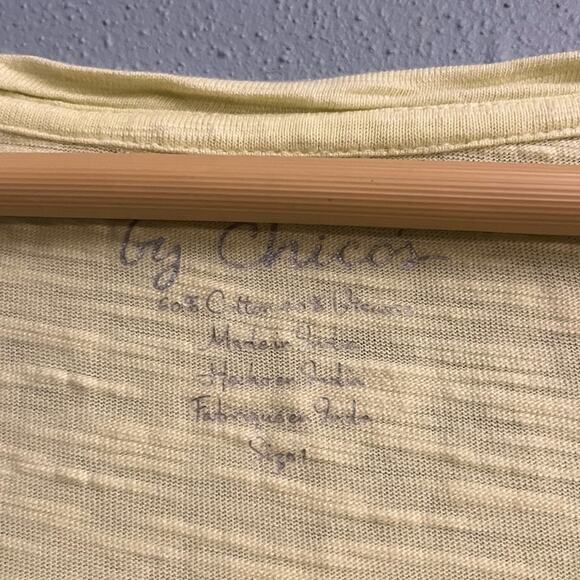 by Chico's
60% Cotton 40% Viscose
Made in India
Hecho en India
Fabriqué en Inde
Size 1